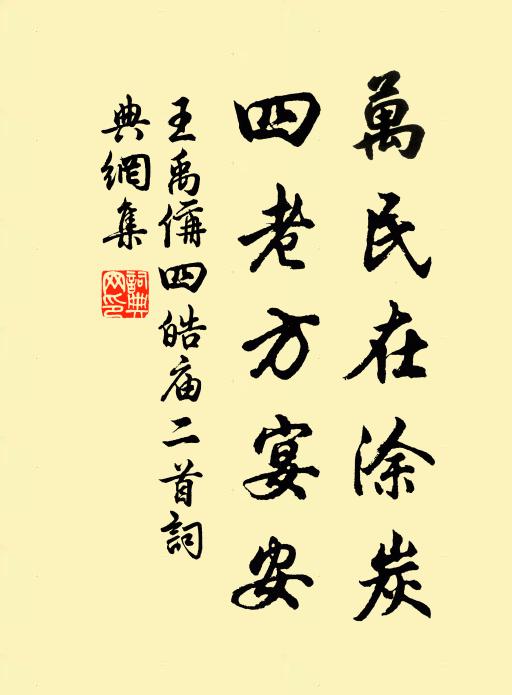 萬民在涂炭
四老方宴安
王禹偁四皓庙二首詞
典網集
詞典
网印